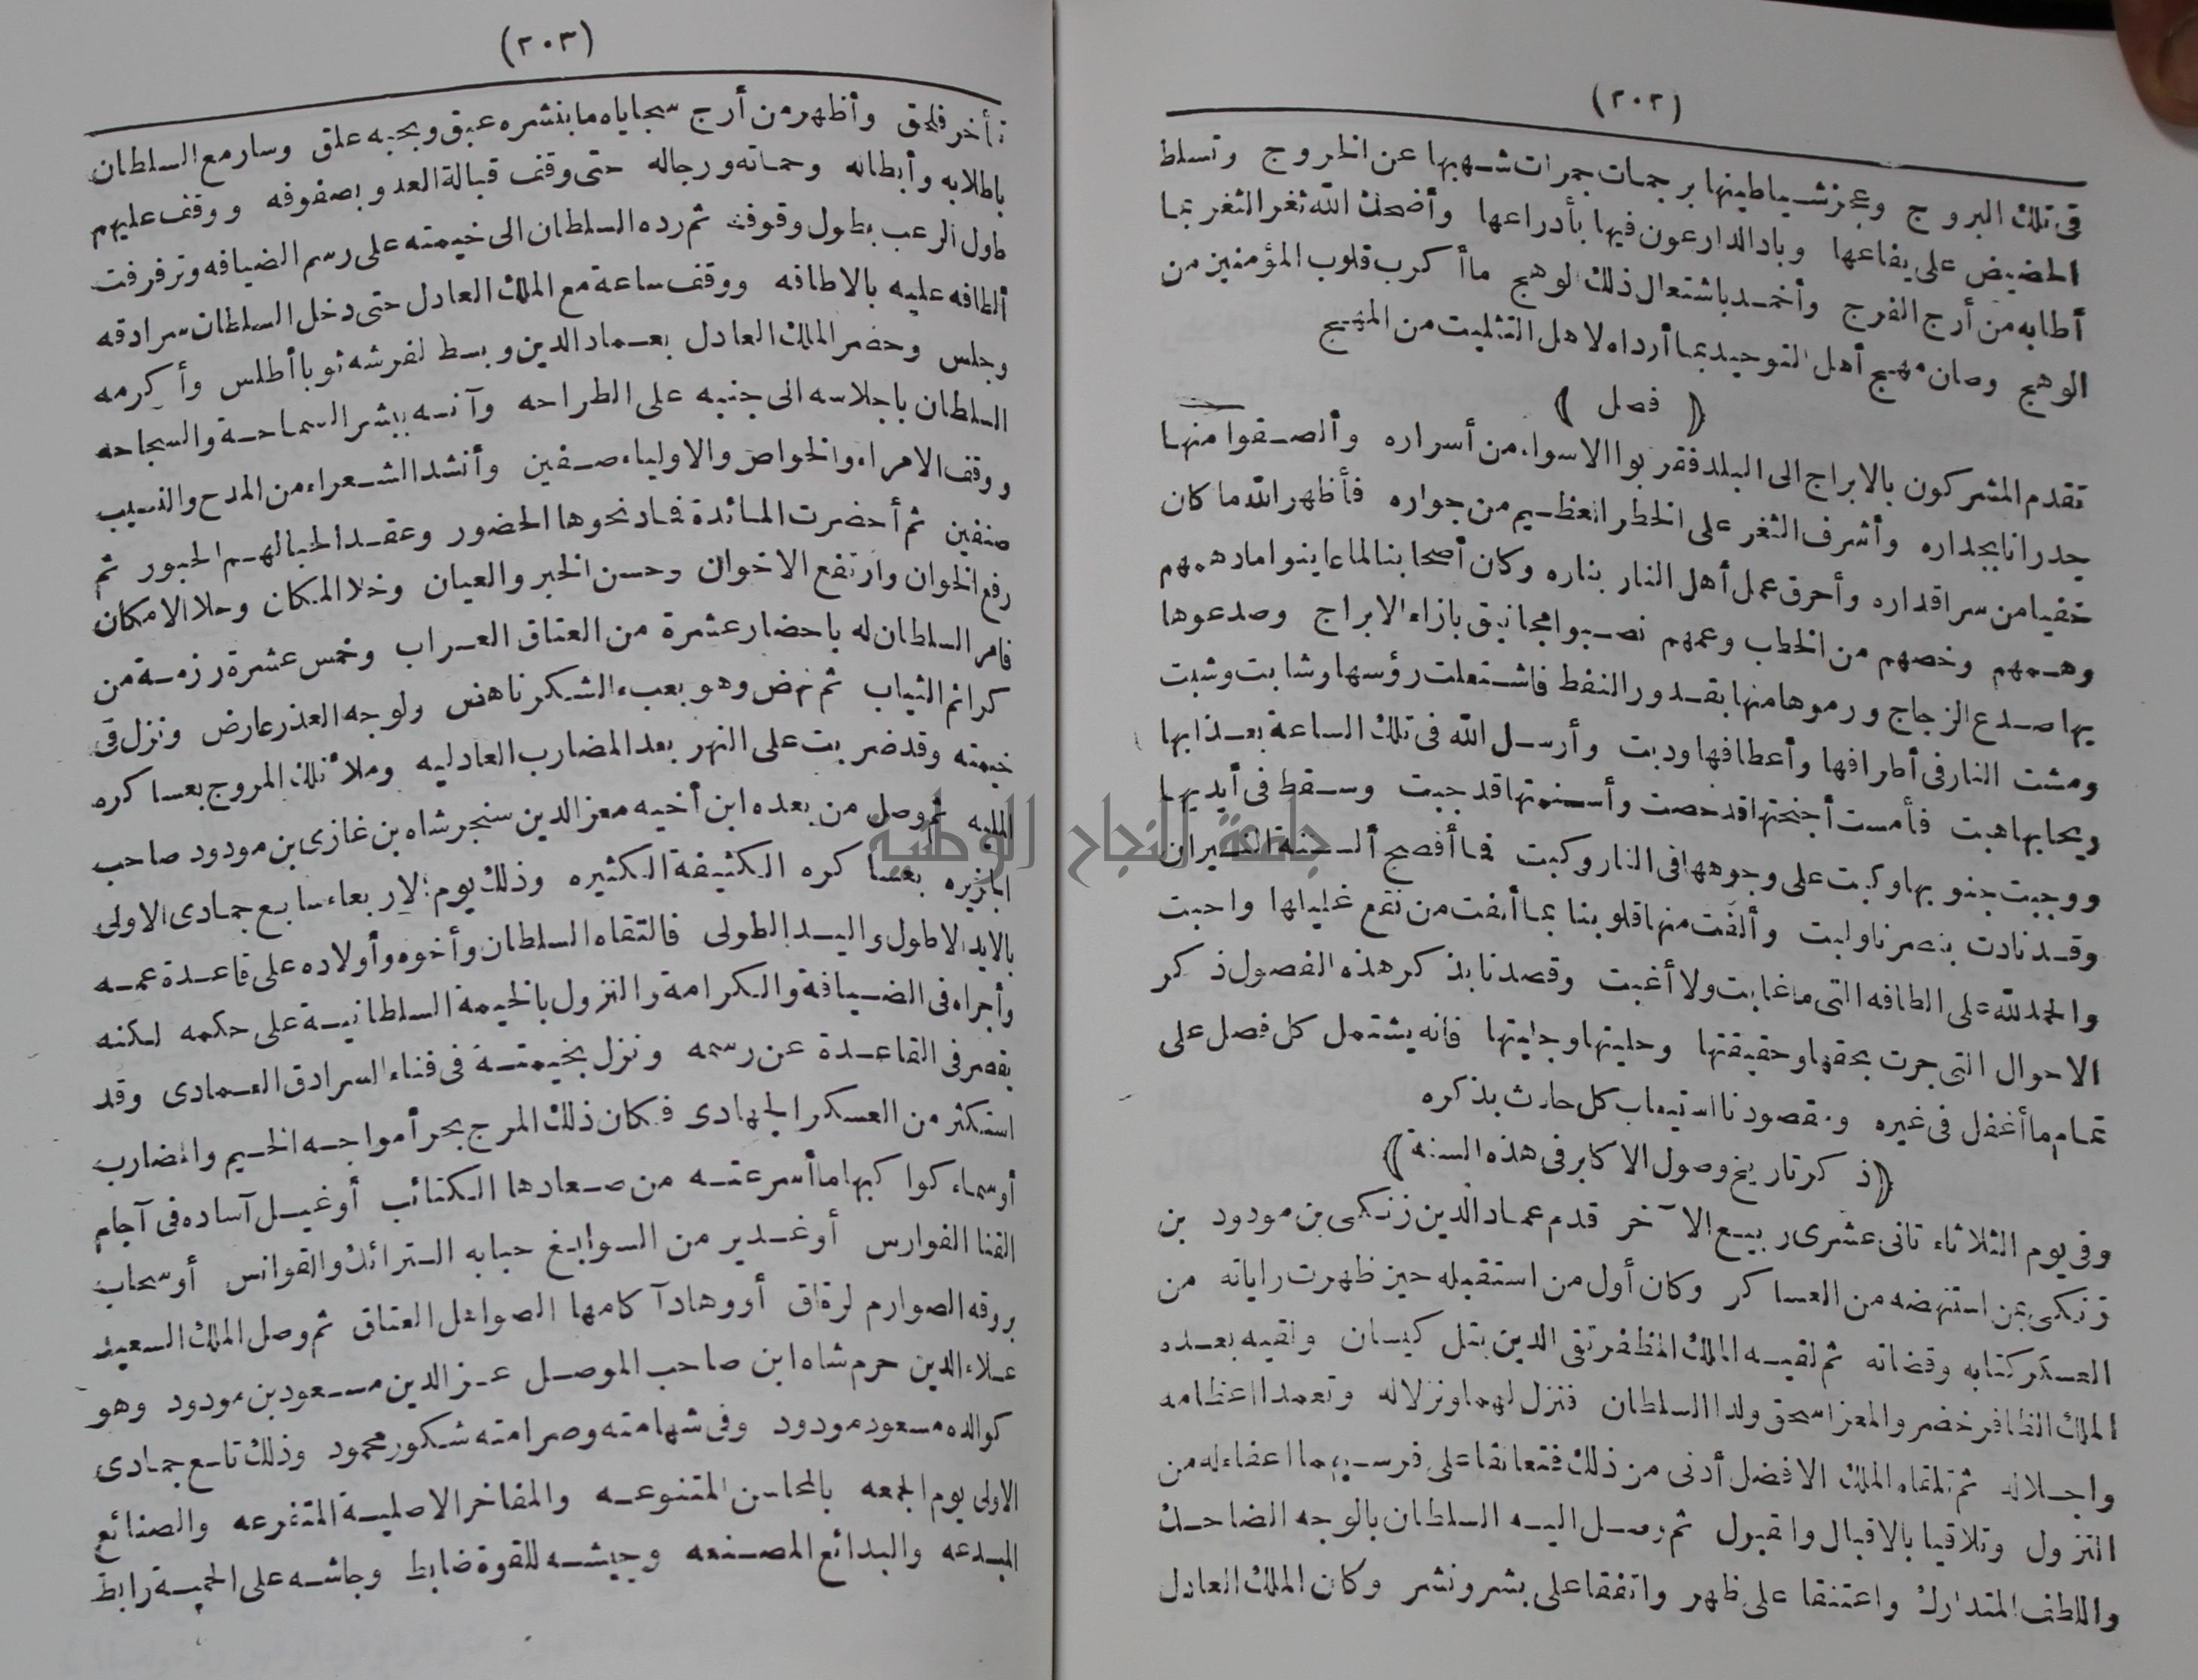 (٢٠٢)
فى تلك البروج وعجز شياطينها برجمات جمرات شهبها عن الخروج وتسلط
الحضيض على يفاعها وباد الدارعون فيها بأدراعها وأضحك الله ثغر الثغر بما
أطابه من أرج الفرج وأخمد باشتعال ذلك لوهج ما أكرب قلوب المؤمنين من
الوهج وصان مهج أهل التوحيد بما أرداه لاهل التثليت من المهج
(فصل)
تقدم المشركون بالابراج الى البلد فقربوا الاسواء من أسراره وألصقوا منها
جدرانا بجداره وأشرف الثغر على الخطر العظيم من جواره فأظهر الله ما كان
خفيا من سر اقداره وأحرق عمل أهل النار بناره وكان أصحابنا لما عاينوا ما دهمهم
وهمهم وخصهم من الخطب وعمهم نصبوا مجانيق بازاء الابراج وصدعوها
بها صدع الزجاج ورموها منها بقدور النفط فاشتعلت رؤسها وشابت وشبت
ومشت النار فى أطرافها وأعطافها ودبت وأرسل الله فى تلك الساعة بعذابها
ريحابها هبت فأمست أجنحتها قد حصت وأسنمتها قد جبت وسقط فى أيديها
ووجبت جنوبها وكبت على وجوهها فى النار وكبت فما أفصح ألسنة النيران
وقد نادت بنصرنا ولبت وألفت منها قلوبنا بما أنفت من نقع غليلها واحبت
والحمد لله على الطافه التى ما غابت ولا أغبت وقصدنا بذكر هذه الفصول ذكر
الاحوال التى جرت بحقها وحقيقتها وحليتها وجليتها فانه يشتمل كل فصل على
تمام ما أغفل فى غيره ومقصودنا استيعاب كل حادث بذكره
(ذكر تاريخ وصول الاكابر فى هذه السنة)
وفى يوم الثلاثاء ثانى عشرى ربيع الآخر قدم عماد الدين زنكى بن مودود بن
زنكى بمن استنهضه من العساكر وكان أول من استقبله حين ظهرت راياته من
العسكر كتابه وقضاته ثم لقيه الملك المظفر تقى الدين بتل كيسان ولقيه بعده
الملك الظافر خضر والمعز اسحق ولدا السلطان فنزل لهما ونزلا له وتعمدا اعظامه
واجلاله ثم تلقاه الملك الافضل أدنى من ذلك فتعانقا على فرسيهما اعفاء له من
النزول وتلاقيا بالاقبال والقبول ثم وصل اليه السلطان بالوجه الضاحك
واللطف المتدارك واعتنقا على ظهر واتفقا على بشر ونشر وكان الملك العادل
(٢٠٣)
تأخر فلحق وأظهر من أرج سجاياه ما بنشره عبق وبحبه علق وسار مع السلطان
باطلابه وأبطاله وحماته ورجاله حتى وقف قبالة العدو بصفوفه ووقف عليهم
طول الرعب بطول وقوفه ثم رده السلطان الى خيمته على رسم الضيافه وترفرفت
ألطافه عليه بالاطافه ووقف ساعة مع الملك العادل حتى دخل السلطان سرادقه
وجلس وحضر الملك العادل بعماد الدين وبسط لفرشه ثوبا أطلس وأكرمه
السلطان باجلاسه الى جنبه على الطراحه وآنسه ببشر السماحة والسجاحه
ووقف الامراء والخواص والاولياء صفين وأنشد الشعراء من المدح والنسيب
صنفين ثم أحضرت المائدة فماد نحوها الحضور وعقد الحبا لهم الحبور ثم
رفع الخوان وارتفع الاخوان وحسن الخبر والعيان وخلا المكان وحلا الامكان
فامر السلطان له باحضار عشرة من العتاق العراب وخمس عشرة رزمة من
كرائم الثياب ثم نهض وهو بعبء الشكر ناهض ولوجه العذر عارض ونزل فى
خيمته وقد ضربت على النهر بعد المضارب العادليه وملأ تلك المروج بعساكره
المليه ثم وصل من بعده ابن أخيه معز الدين سنجر شاه بن غازى بن مودود صاحب
الجزيره بعساكره الكثيفة الكثيره وذلك يوم الاربعاء سابع جمادى الاولى
بالايد الاطول واليد الطولى فالتقاه السلطان وأخوه وأولاده على قاعدة عمه
وأجراه فى الضيافة والكرامة والنزول بالخيمة السلطانية على حكمه لكنه
يقصر فى القاعدة عن رسمه ونزل بخيمته فى فناء السرادق العمادى وقد
استكثر من العسكر الجهادى فكان ذلك المرج بحر أمواجه الخيم والمضارب
أو سماء كواكبها ما أسرعته من صعادها الكتائب أو غيل آساده فى آجام
القنا الفوارس أو غدير من السوابغ حبابه الترائك والقوانس أو سحاب
بروقه الصوارم لرقاق أو وهاد آكامها الصواهل العتاق ثم وصل الملك السعيد
علاء الدين خرم شاه ابن صاحب الموصل عز الدين مسعود بن مودود وهو
كوالده مسعود مودود وفى شهامته وصرامته شكور محمود وذلك تاسع جمادى
الاولى يوم الجمعه بالمحاسن المتنوعه والمفاخر الاصلية المتفرعه والصنائع
المبدعه والبدائع المصنعه وجيشه للقوة ضابط وجاشه على الحمية رابط
جامعة النجاح الوطنية